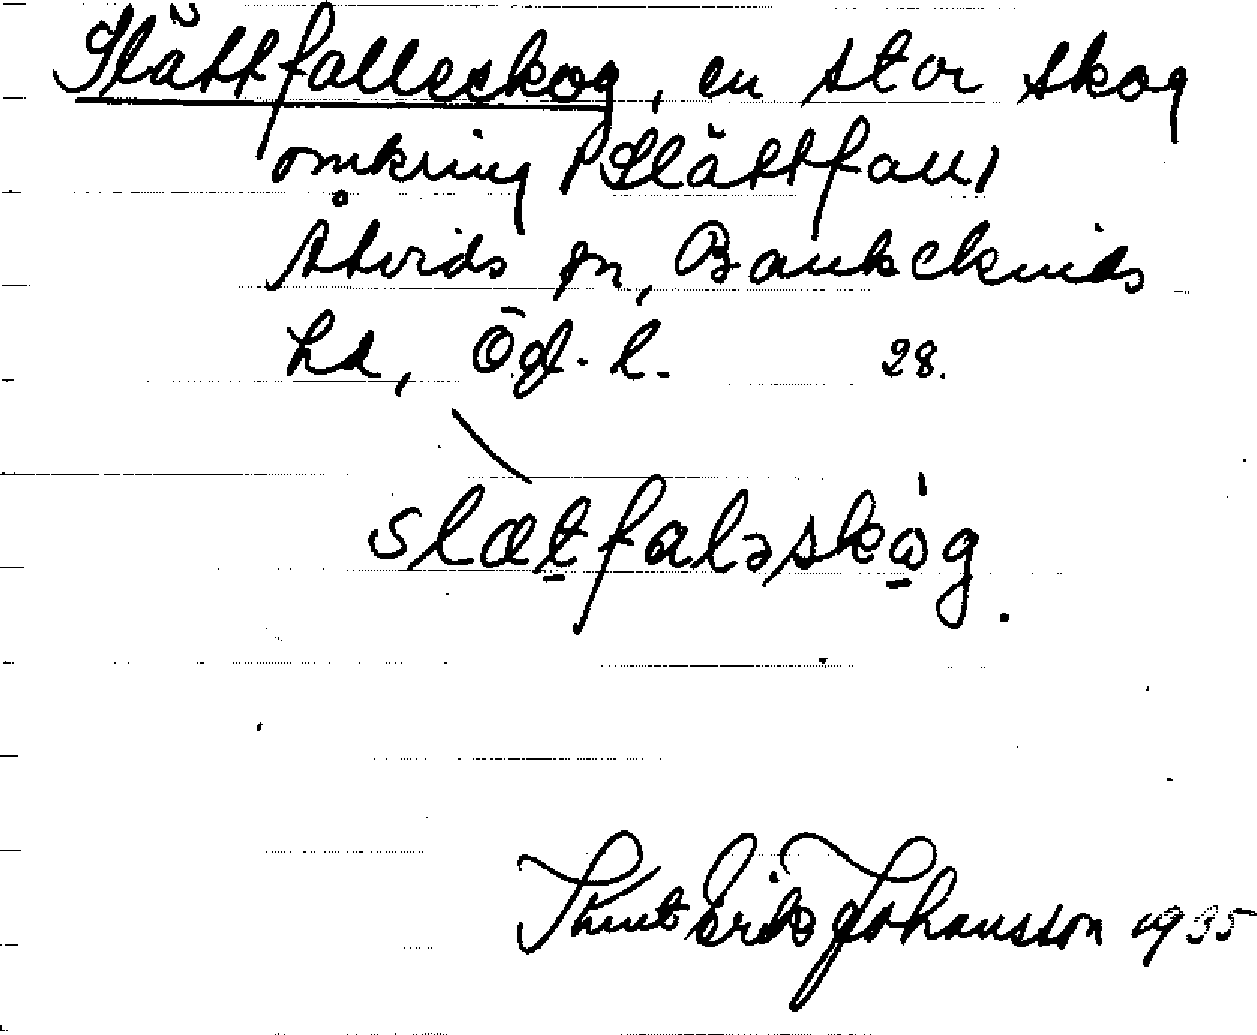 Slättfalleskog, en stor skog
omkring Slättfall
Åtvids sn, Bankekinds
hd, Ögl. l. 28.
slætfaləskog.
Knut Erik Johansson 1935